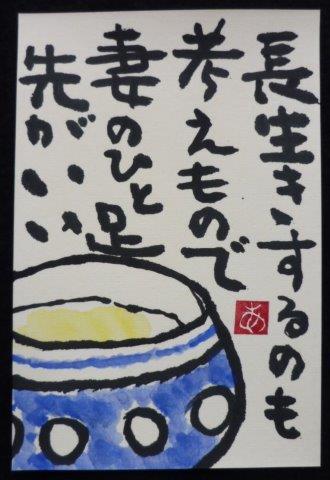 長生きするのも
考えもので
妻のひと足
先がいいや
あ